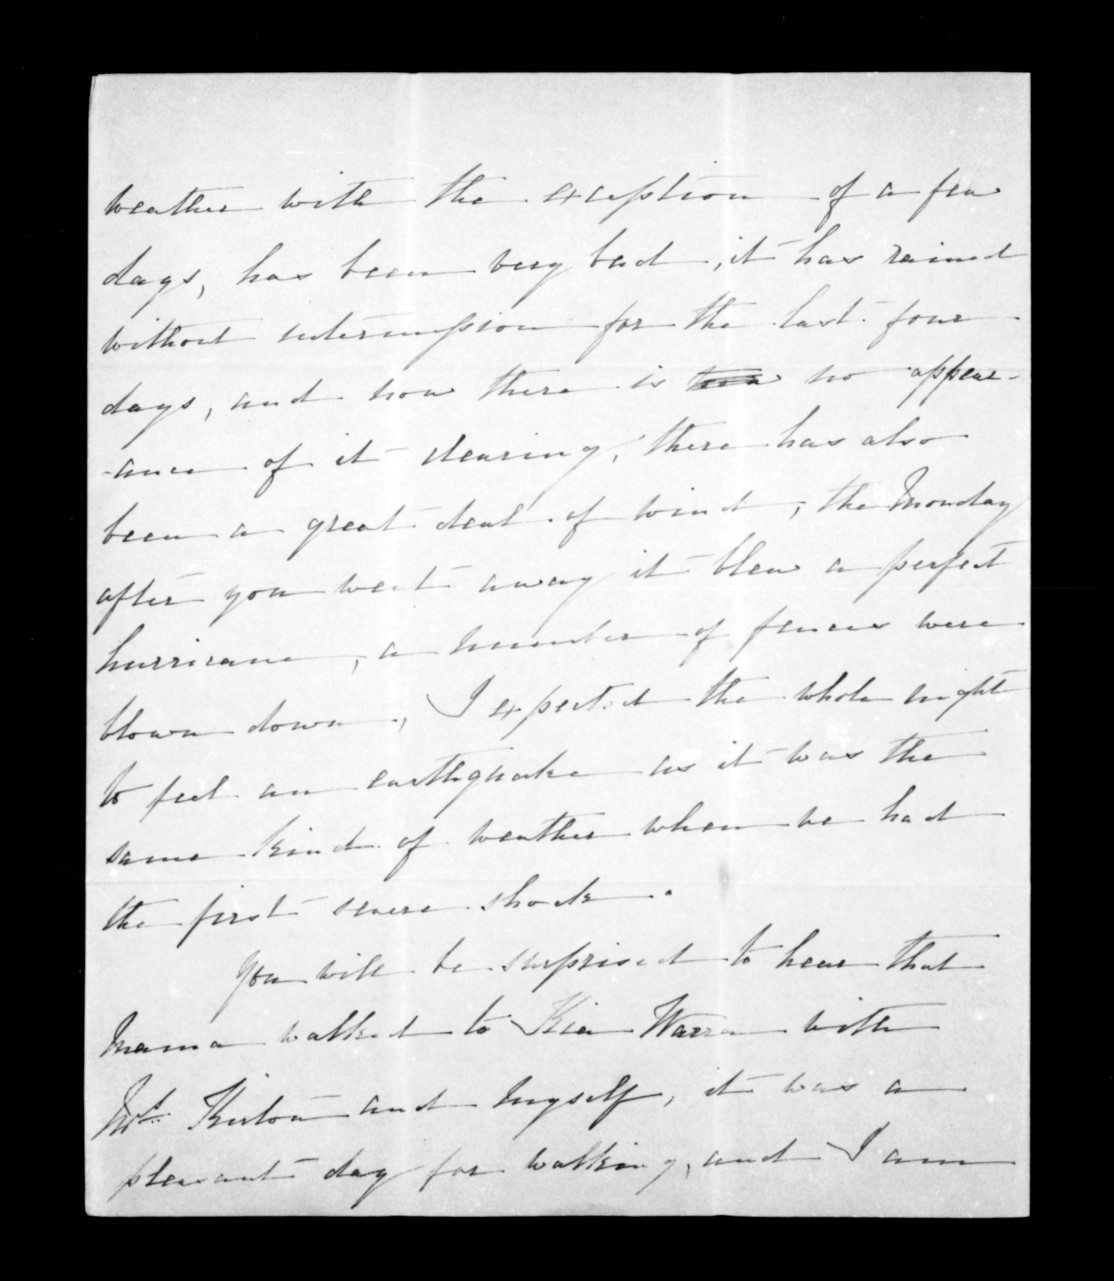 weather with the exception of a few
days, has been very bad, it has rained
without intermission for the last four
days, and now there is no appear-
-ance of it clearing, there has also
been a great deal of wind, the Monday
after you went away it blew a perfect
hurricane, a number of fences were
blown down, I expected the whole night
to feel an earthquake as it was the
same kind of weather when we had
the first severe shock.
You will be surprised to hear that
Mama walked to Kia Warra with
and myself, it was a
pleasant day for walking, and I am